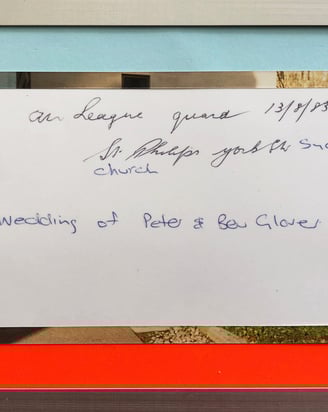 an League guard 13/8/83
St. Philips york St Syd
church
Wedding of Peter & Bev Glover